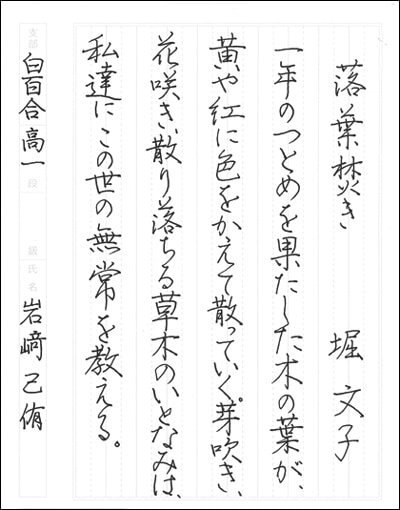 落葉焚き 堀文子
一年のつとめを果たした木の葉が、
黄や紅に色をかえて散っていく。芽吹き、
花咲き、散り落ちる草木のいとなみは、
私達にこの世の無常を教える。
支部 白百合高一 段 級 氏名 岩﨑己侑